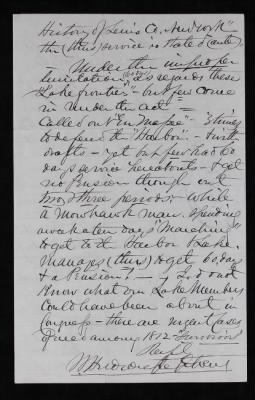 History of Lewis Co. New York"
the (then) service is stated (ante).
Under the improper
limitation as regards these
Lake frontier" but few come
in under the act —
Called out "En Masse" - 3 times
to defend the "Harbor" - & with
drafts - yet but few had 60
days service hereabouts - & get
no Pension though out
two & three periods; - while
a Mowhawk man, spending
a week or ten days "Marching"
to get to the Harbor & Lake,
manages (thus) to get 60 days
& a Pension! — I do not
know what our Lake Members
could have been about in
Congress - there are urgent cases
of need among 1812 "Survivors"